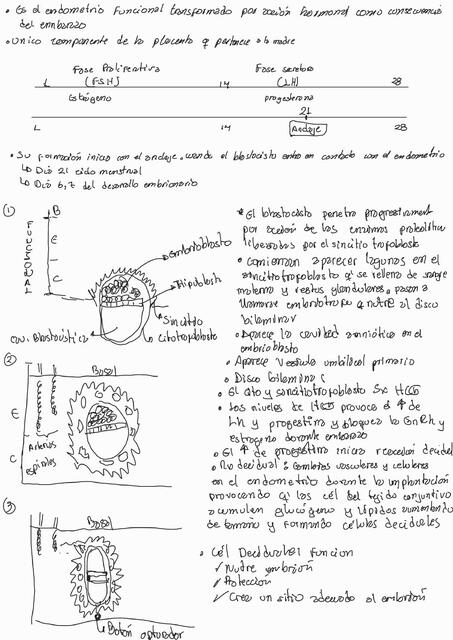 • Es el endometrio Funcional transformado por acción hormonal como consecuencia
del embarazo
• Unico componente de la placenta q pertenece a la madre
Fase Proliferativa
(FSH)
Fase secretora
(LH)
1
14
28
Estrógeno
progesterona
21
1
14
Anclaje
28
• Su formación inicia con el anclaje, cuando el blastocisto entra en contacto con el endometrio
↳ Dia 21 ciclo menstrual
↳ Dia 6,7 del desarrollo embrionario
①
FUNCIONAL
B
E
C
Embrioblasto
Hipoblasto
Sincitio
Citotrofoblasto
Cav. Blastocística
* El blastocisto penetra progresivament
por acción de las enzimas proteolítica
liberadas por el sincitio trofoblasto
• Comienzan aparecer lagunas en el
sincitiotrofoblasto q' se rellena de sangre
materna y restos glandulares, pasan a
llamarse embriotrofo q nutre al disco
bilaminar
• Aparece la cavidad amniótica en el
embrioblasto
• Aparece Vesícula umbilical primaria
• Disco bilaminar
• El cito y sincitiotrofoblasto Sx HCG
• Los niveles de HCG provoca el ↑ de
LH y progestina y bloquea la GnRh y
estrogeno durante embarazo
• El ↑ de progestina inicia reacción decidual
• Rx decidual: Cambios vasculares y celulares
en el endometrio durante la implantación
provocando q las cél del tejido conjuntivo
acumulen glucógeno y lípidos aumentando
de tamaño y formando células deciduales
②
Basal
E
C
Arterias
espirales
③
Basal
Botón obturador
• Cél Deciduales Funcion
✓ Nutre embrión
✓ Protección
✓ Crea un sitio adecuado al embrión